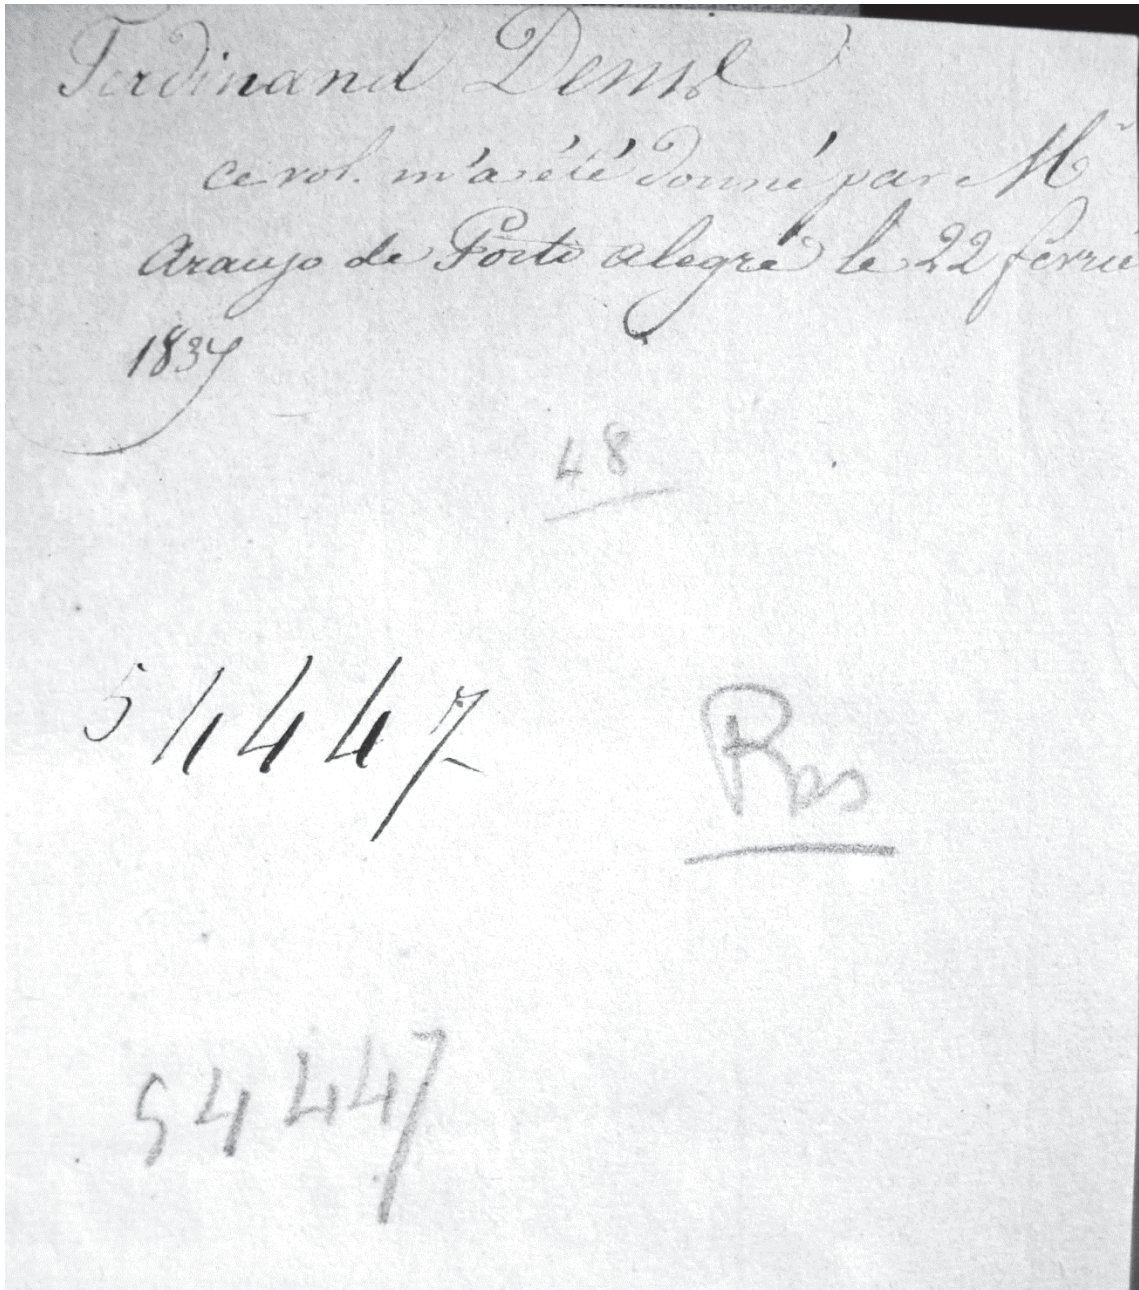 Ferdinand Denis
ce vol. m'a été donné par Mr
Araujo de Porto alegre le 22 fevrie
1837
48
54447
Res
54447